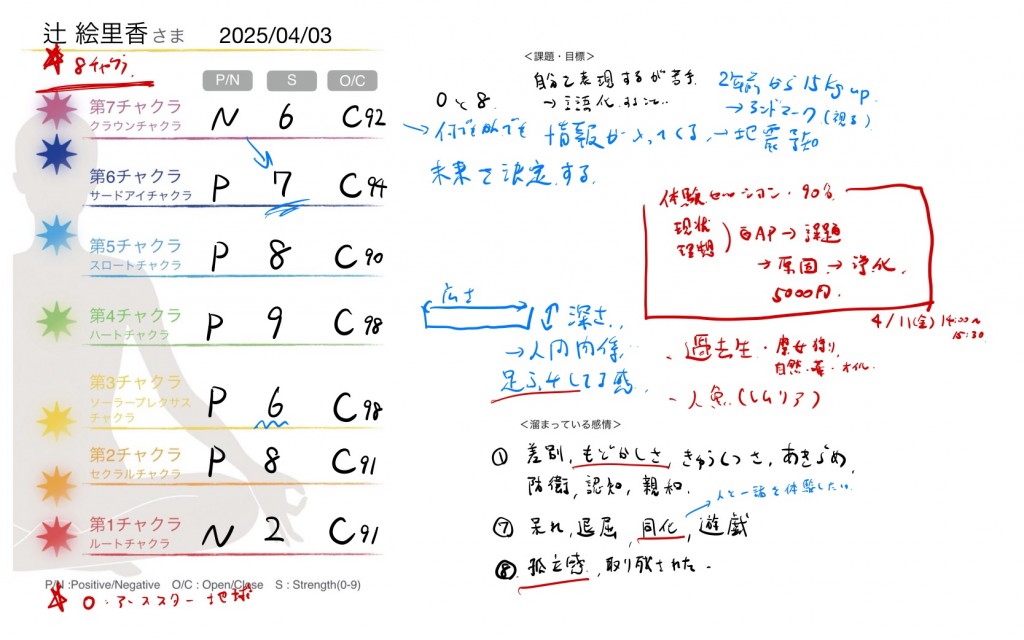 辻 絵里香さま 2025/04/03
8チャクラ
P/N S O/C
第7チャクラ
クラウンチャクラ
N 6 C92
第6チャクラ
サードアイチャクラ
P 7 C94
第5チャクラ
スロートチャクラ
P 8 C90
第4チャクラ
ハートチャクラ
P 9 C98
第3チャクラ
ソーラープレクサス
チャクラ
P 6 C98
第2チャクラ
セクラルチャクラ
P 8 C91
第1チャクラ
ルートチャクラ
N 2 C91
P/N :Positive/Negative O/C : Open/Close S : Strength(0-9)
0・アースター地球
<課題・目標>
自分を表現するが苦手
→言語化
0と8.
2年前から15kg up.
→ランドマーク(視る)
→何でもかんでも 情報が入ってくる、→地震予知
未来を決定する。
体験セッション・90分
現状
理想
)GAP→課題
→原因→浄化
5000円
4/11(金) 14:00〜
15:30
広さ
深さ、
→人間関係
足ぶみしてる感、
、過去生・魔女狩り
自然・薬・オイル
- 人魚(レムリア)
<溜まっている感情>
① 差別, もどかしさ, きゅうくつさ, あきらめ,
防衛, 認知, 親和.
人と一緒を体験したい
⑦ 呆れ, 退屈, 同化, 遊戯
⑧ 孤立感, 取り残された